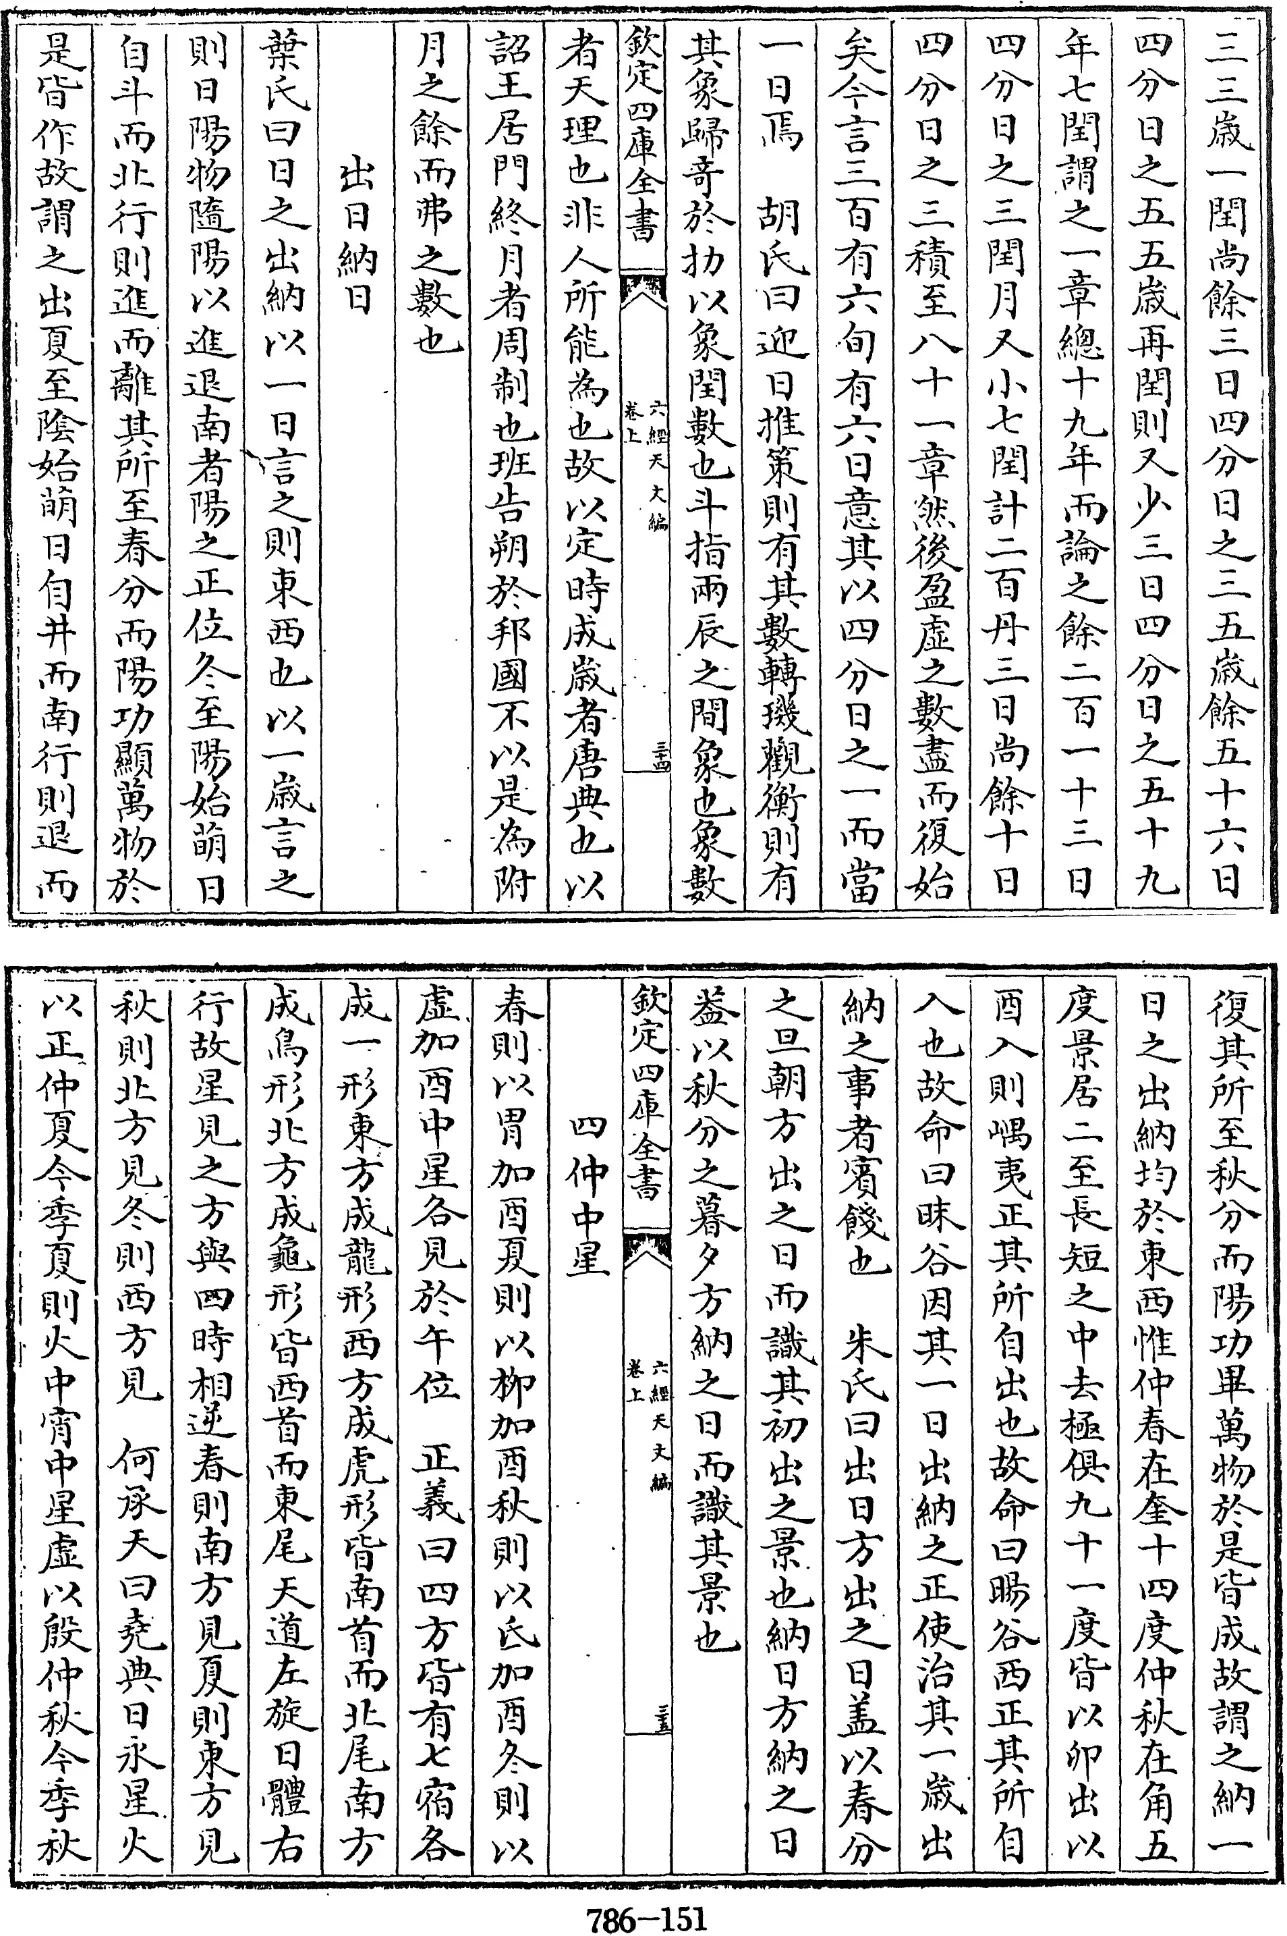 三三歲一閏尚餘三日四分日之三五歲餘五十六日
四分日之五五歲再閏則又少三日四分日之五十九
年七閏謂之一章總十九年而論之餘二百一十三日
四分日之三閏月又小七閏計二百丹三日尚餘十日
四分日之三積至八十一章然後盈虛之數盡而復始
矣今言三百有六旬有六日意其以四分日之一而當
一日焉　胡氏曰迎日推策則有其數轉璣觀衡則有
其象歸奇於扐以象閏數也斗指兩辰之間象也象數
欽定四庫全書
六經天文編
卷上
三十四
者天理也非人所能為也故以定時成歲者唐典也以
詔王居門終月者周制也班告朔於邦國不以是為附
月之餘而弗之數也
出日納日
葉氏曰日之出納以一日言之則東西也以一歲言之
則日陽物隨陽以進退南者陽之正位冬至陽始萌日
自斗而北行則進而離其所至春分而陽功顯萬物於
是皆作故謂之出夏至陰始萌日自井而南行則退而
復其所至秋分而陽功畢萬物於是皆成故謂之納一
日之出納均於東西惟仲春在奎十四度仲秋在角五
度景居二至長短之中去極俱九十一度皆以卯出以
酉入則嵎夷正其所自出也故命曰暘谷西正其所自
入也故命曰昧谷因其一日出納之正使治其一歲出
納之事者賓餞也　朱氏曰出日方出之日盖以春分
之旦朝方出之日而識其初出之景也納日方納之日
葢以秋分之暮夕方納之日而識其景也
欽定四庫全書
六經天文編
卷上
三十五
四仲中星
春則以胃加酉夏則以柳加酉秋則以氐加酉冬則以
虛加酉中星各見於午位　正義曰四方皆有七宿各
成一形東方成龍形西方成虎形皆南首而北尾南方
成鳥形北方成龜形皆西首而東尾天道左旋日體右
行故星見之方與四時相逆春則南方見夏則東方見
秋則北方見冬則西方見　何承天曰堯典日永星火
以正仲夏今季夏則火中宵中星虛以殷仲秋今季秋
786-151